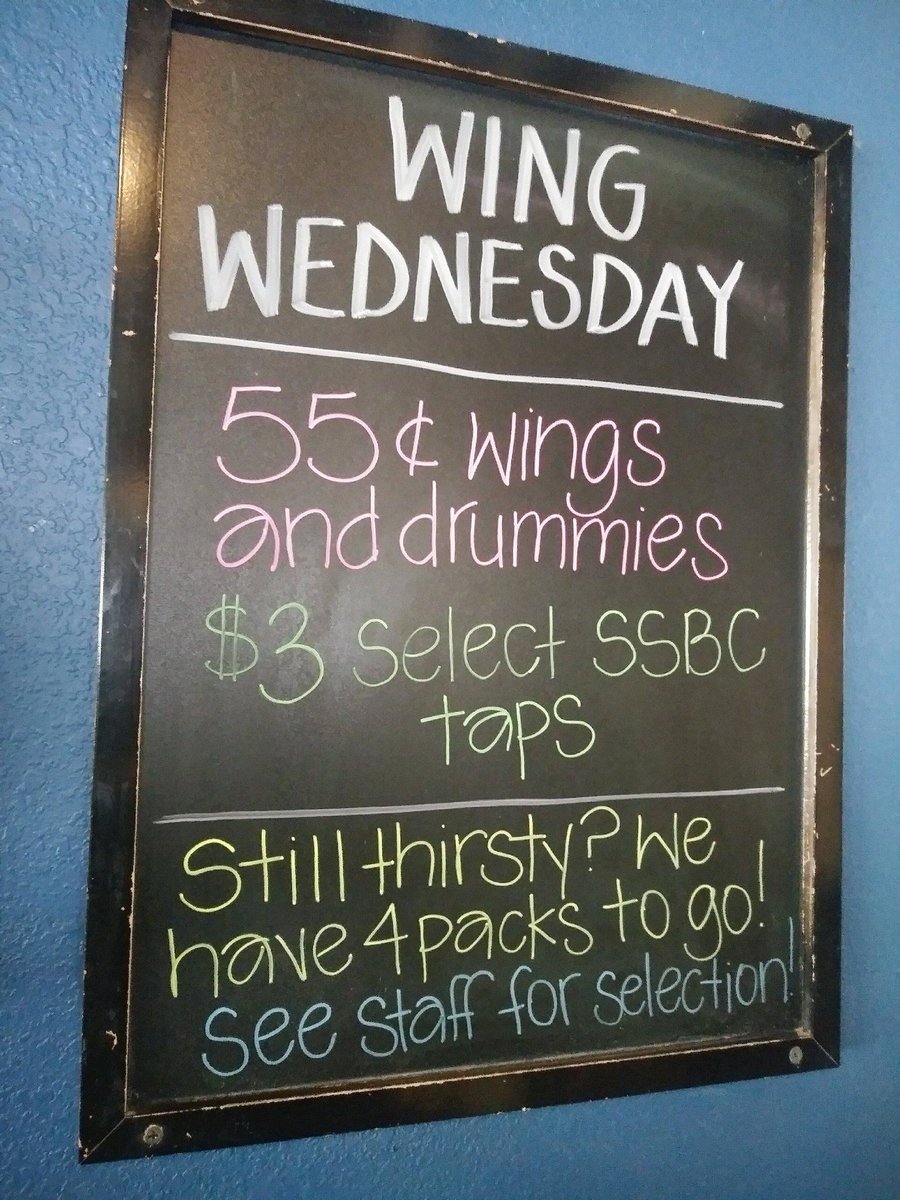 WING
WEDNESDAY
55¢ wings
and drummies
$3 select SSBC
taps
Still thirsty? We
have 4 packs to go!
see staff for selection!